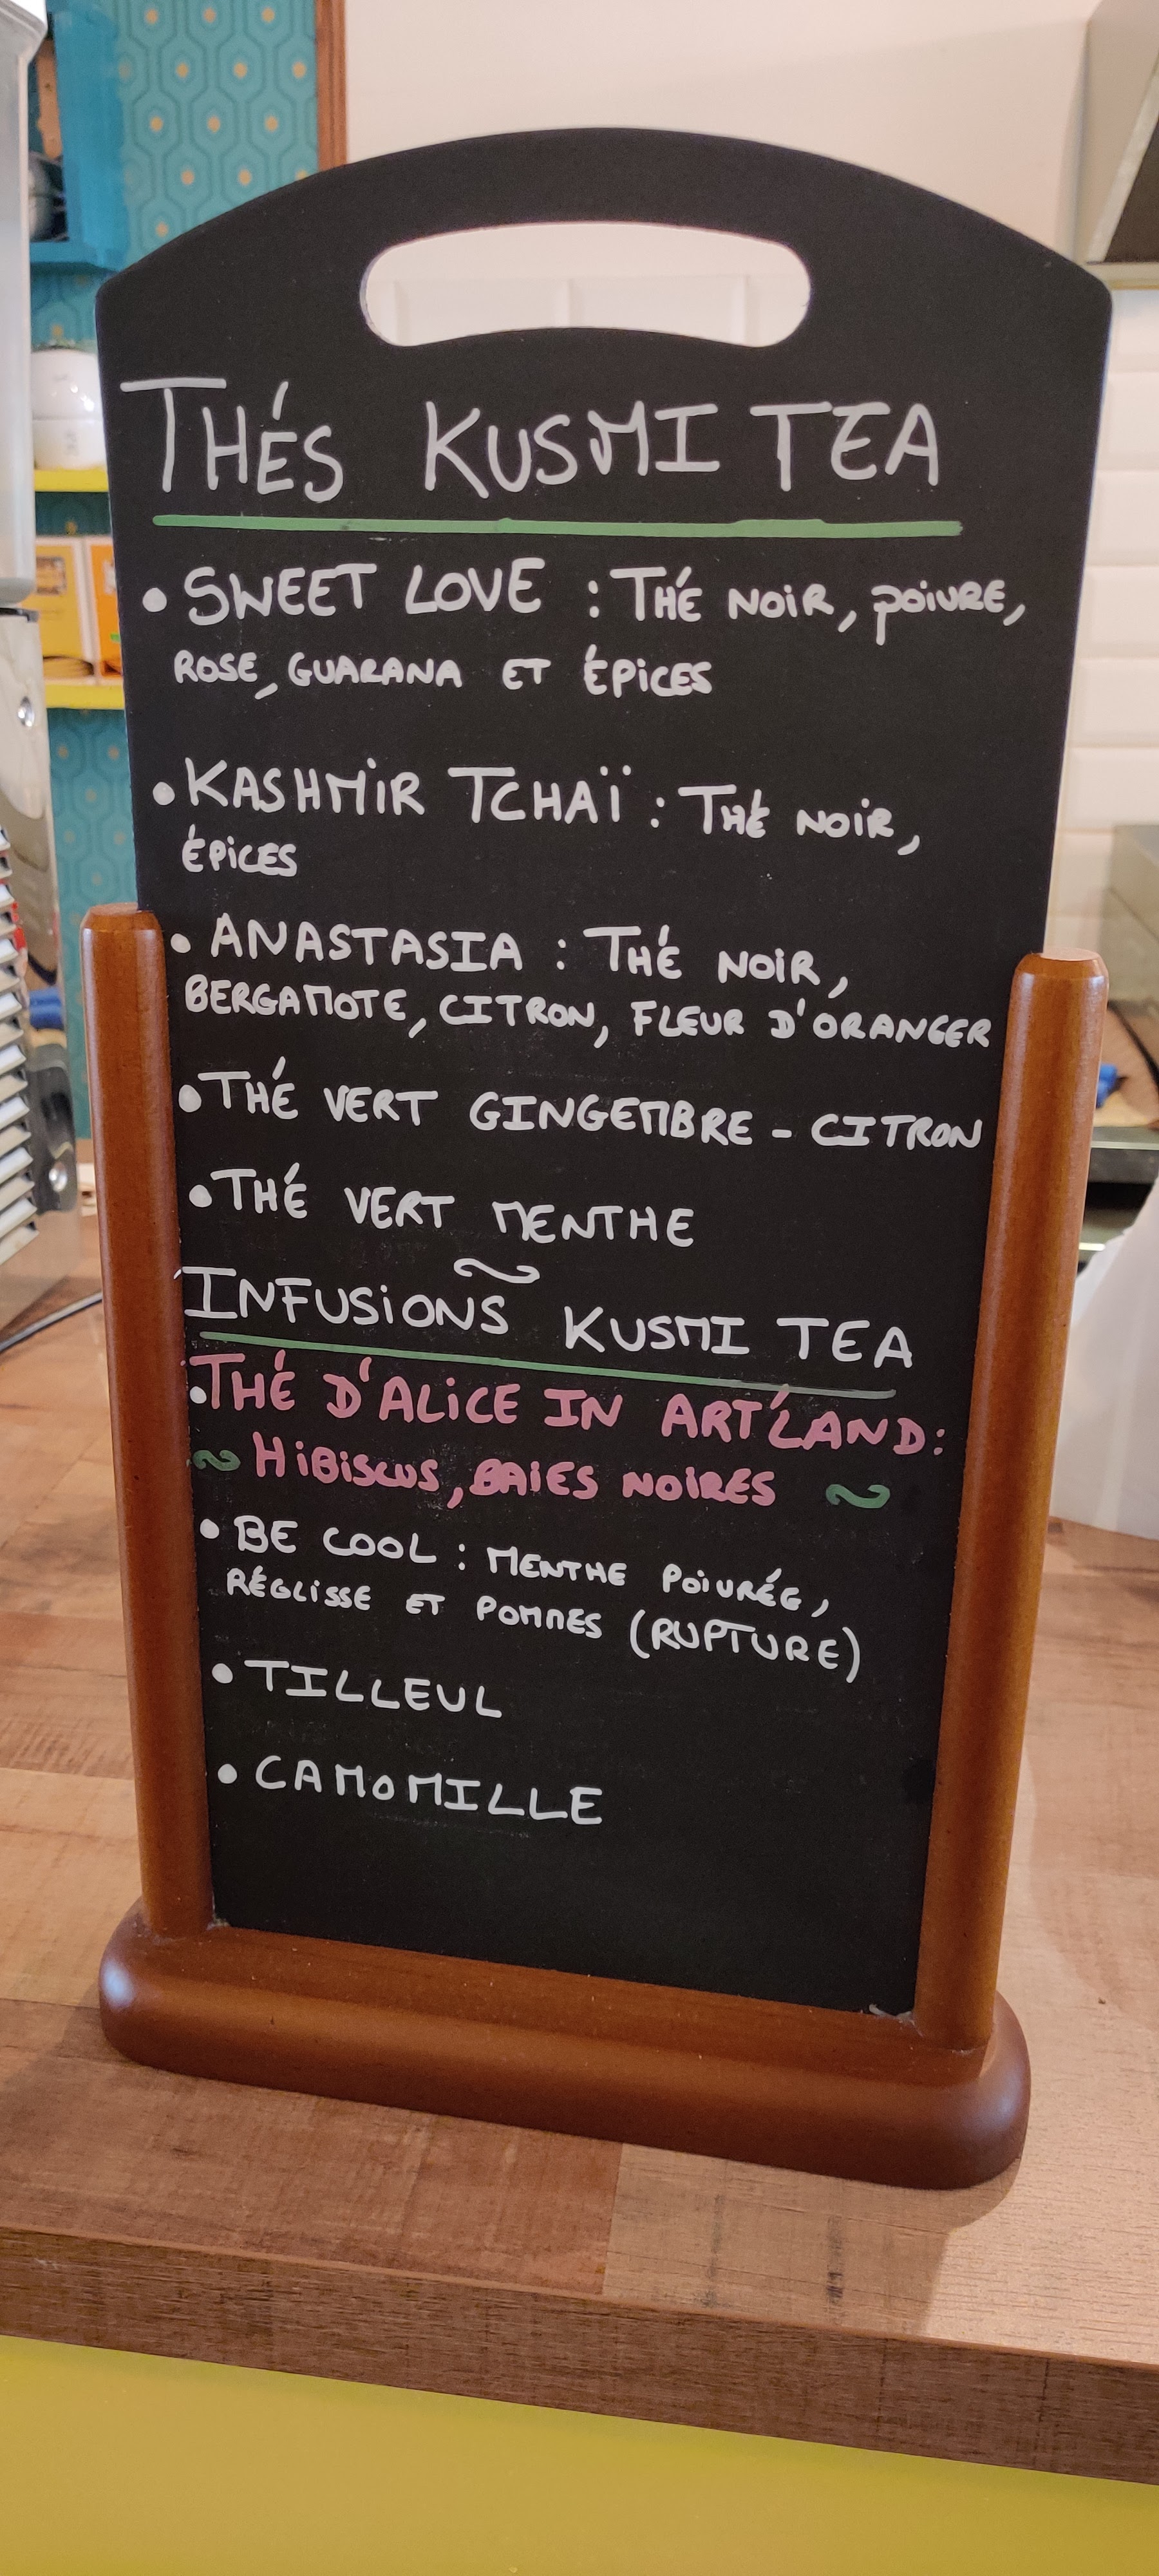 THÉS KUSMI TEA
• SWEET LOVE : THÉ NOIR, POIVRE,
ROSE, GUARANA ET ÉPICES
• KASHMIR TCHAÏ : THÉ NOIR,
ÉPICES
• ANASTASIA : THÉ NOIR,
BERGAMOTE, CITRON, FLEUR D'ORANGER
• THÉ VERT GINGEMBRE - CITRON
• THÉ VERT MENTHE
~
INFUSIONS KUSMI TEA
• THÉ D'ALICE IN ART'LAND:
~ HIBISCUS, BAIES NOIRES ~
• BE COOL : MENTHE POIVRÉE,
RÉGLISSE ET POMMES (RUPTURE)
• TILLEUL
• CAMOMILLE